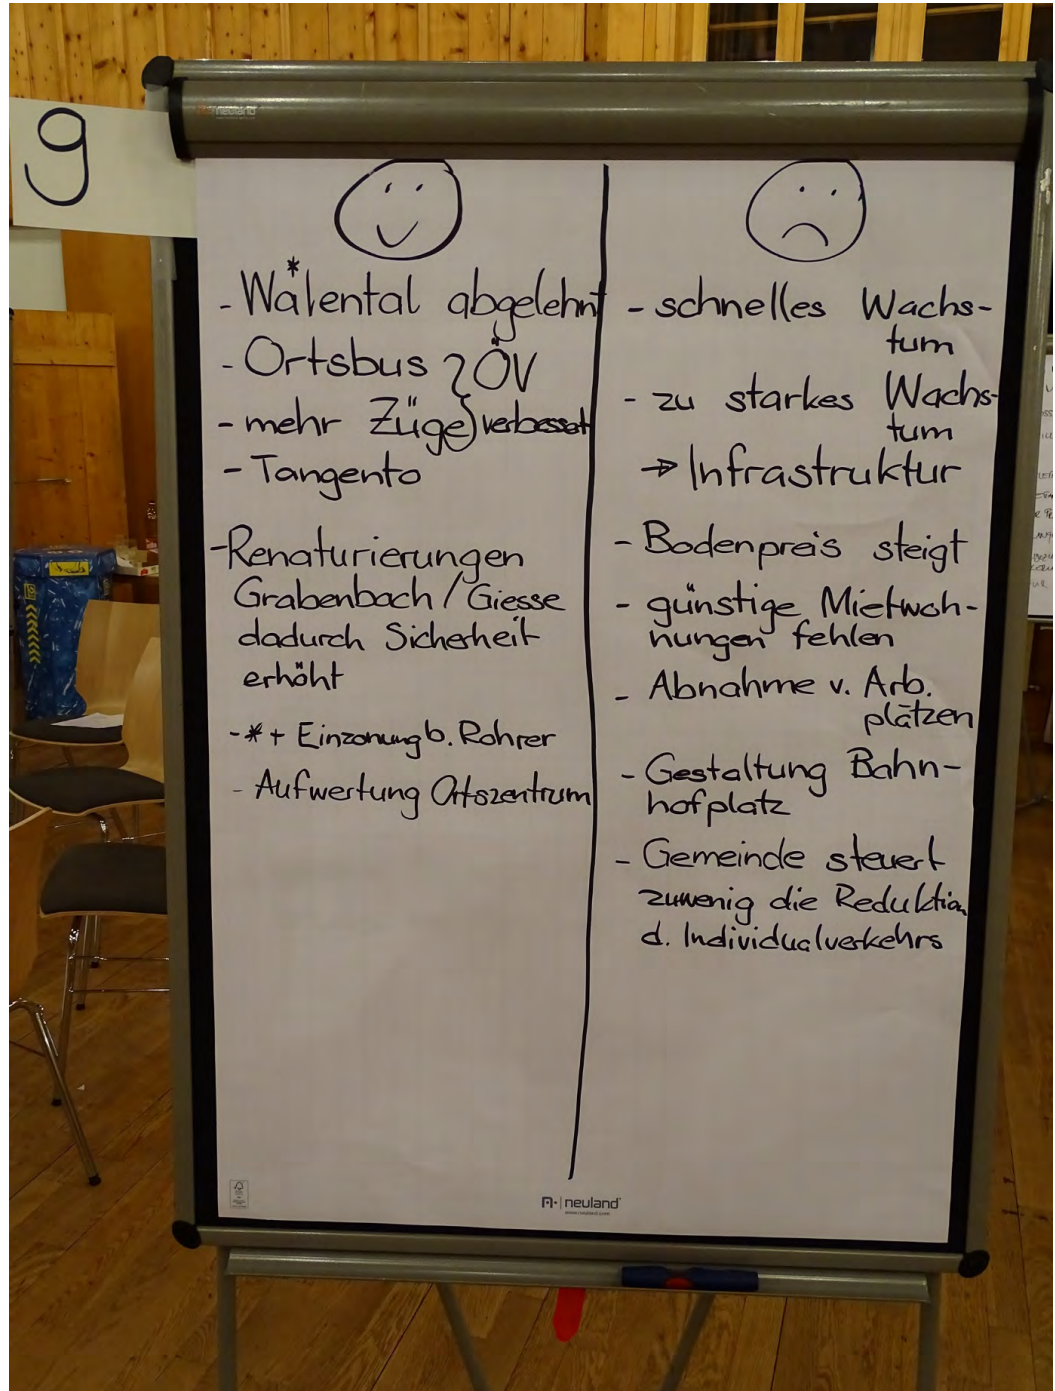 9
neuland
- Wälental* abgelehnt
- Ortsbus } ÖV
- mehr Züge } verbessert
- Tangento
- Renaturierungen
Grabenbach / Giesse
dadurch Sicherheit
erhöht
- * + Einzonung b. Rohrer
- Aufwertung Ortszentrum
- schnelles Wachs-
tum
- zu starkes Wachs-
tum
→ Infrastruktur
- Bodenpreis steigt
- günstige Mietwoh-
nungen fehlen
- Abnahme v. Arb.
plätzen
- Gestaltung Bahn-
hofplatz
- Gemeinde steuert
zuwenig die Reduktion
d. Individualverkehrs
neuland